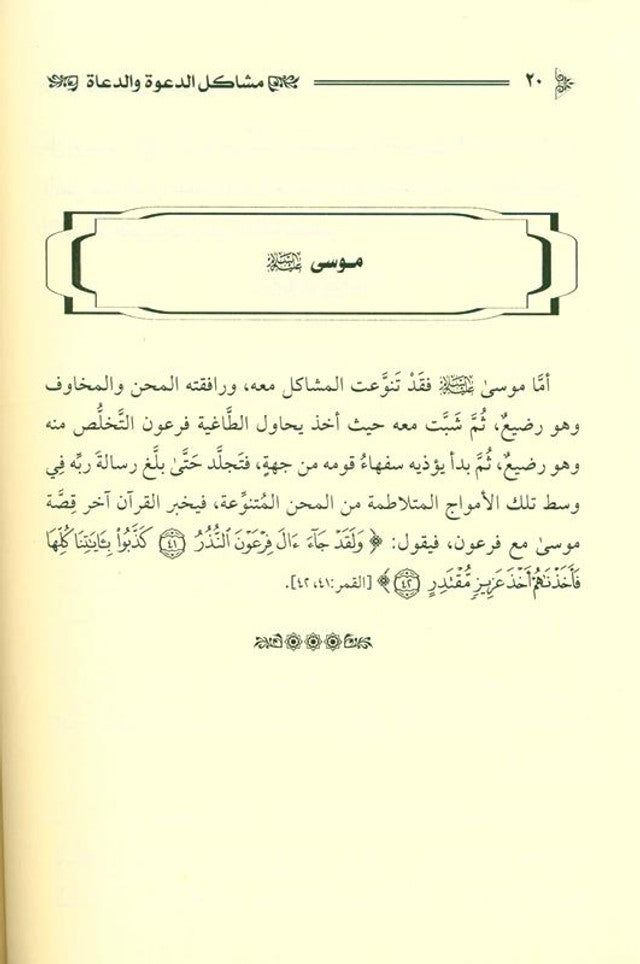 ٢٠ مشاكل الدعوة والدعاة
موسى عليه السلام
أمَّا موسىٰ عليه السلام فقَدْ تَنوَّعت المشاكل معه، ورافقته المحن والمخاوف
وهو رضيعٌ، ثُمَّ شَبَّت معه حيث أخذ يحاول الطَّاغية فرعون التَّخلُّص منه
وهو رضيعٌ، ثُمَّ بدأ يؤذيه سفهاءُ قومه من جهةٍ، فتَجلَّد حَتَّىٰ بلَّغ رسالةَ ربِّه فِي
وسط تلك الأمواج المتلاطمة من المحن المُتنوِّعة، فيخبر القرآن آخر قِصَّة
موسىٰ مع فرعون، فيقول: ﴿ وَلَقَدۡ جَآءَ ءَالَ فِرۡعَوۡنَ ٱلنُّذُرُ ٤١ كَذَّبُواْ بِـَٔايَٰتِنَا كُلِّهَا
فَأَخَذۡنَٰهُمۡ أَخۡذَ عَزِيزٖ مُّقۡتَدِرٍ ٤٢ ﴾ [القمر:٤١، ٤٢].